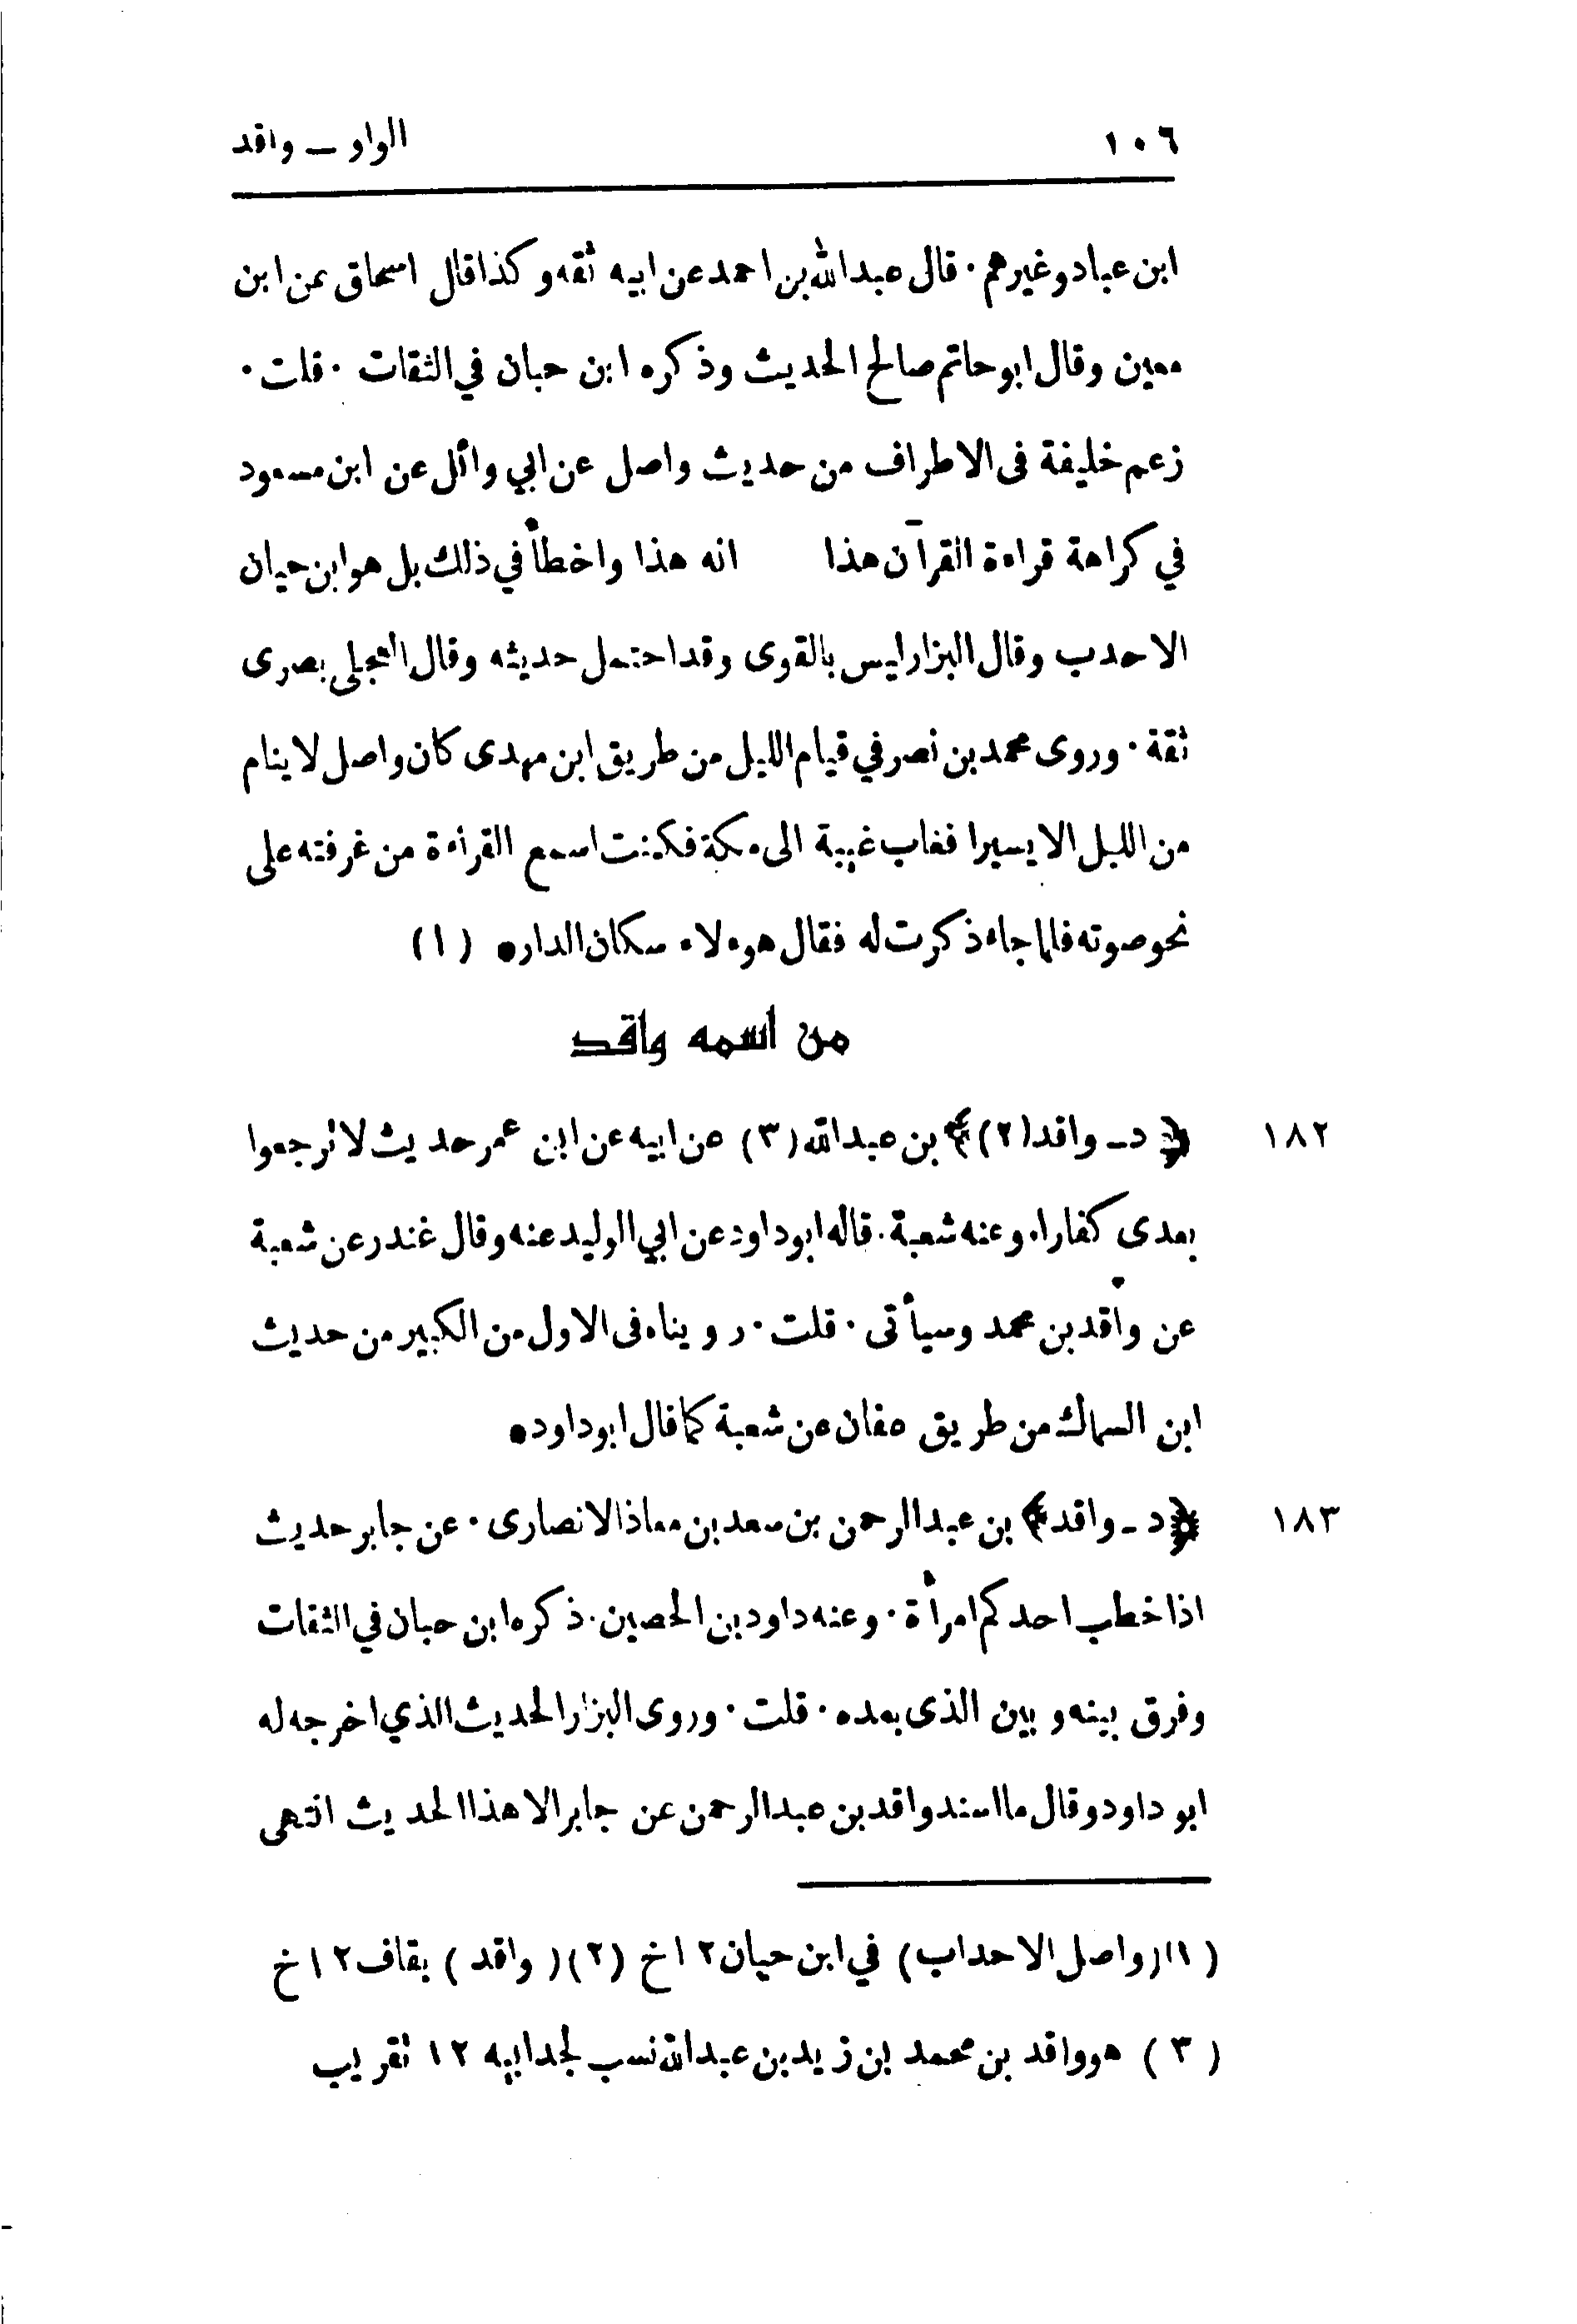 ١٠٦ الواو – واقد
ابن عباد وغيرهم · قال عبدالله بن احمد عن ابيه ثقه وكذا قال اسحاق بمن ابن
معين وقال ابو حاتم صالح الحديث وذكره ابن حبان في الثقات · قلت ·
زعم خليفة فى الاطراف من حديث واصل عن ابي وائل عن ابن مسعود
في كراهة قراءة القرآن هذا انه هذا واخطأ في ذلك بل هو ابن حيان
الاحدب وقال البزار ليس بالقوى وقد احتمل حديثه وقال العجلى بصرى
ثقة · وروى محمد بن نصر في قيام الليل من طريق ابن مهدى كان واصل لا ينام
من الليل الا يسيرا فغاب غيبة الى مكة فكنت اسمع القراءة من غرفته على
نحو صوته فلما جاء ذكرت له فقال هوء لاء سكان الدار • (١)
من اسمه واقد
١٨٢ ﴿ د – واقد (٢) ﴾ بن عبدالله (٣) عن ابيه عن ابن عمر حديث لا ترجعوا
بعدى كفارا، وعنه شعبة · قاله ابو داود عن ابي الوليد عنه وقال غندر عن شعبة
عن واقد بن محمد وسيأتى · قلت · رويناه فى الاول من الكبير من حديث
ابن السماك من طريق عفان عن شعبة كما قال ابو داود •
١٨٣ ﴿ د – واقد ﴾ بن عبدالرحمن بن سعد بن معاذ الانصارى · عن جابر حديث
اذا خطب احدكم امرأة · وعنه داود بن الحصين · ذكره ابن حبان في الثقات
وفرق بينه وبين الذى بعده · قلت · وروى البزار الحديث الذي اخرجه له
ابو داود وقال ما اسند واقد بن عبدالرحمن عن جابر الا هذا الحديث انتهى
(١) (واصل الاحداب) في ابن حيان ١٢ خ (٢) (واقد) بقاف ١٢ خ
(٣) هو واقد بن محمد بن زيد بن عبدالله نسب لجد ابيه ١٢ تقريب